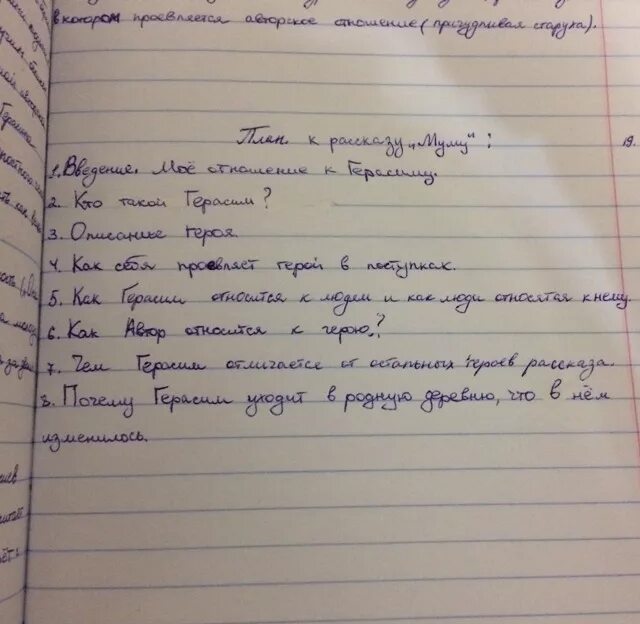 в котором проевляется авторское отношение (причудливая старуха).
План к рассказу „Муму“:
19.
1. Введение. Моё отношение к Герасиму.
2. Кто такой Герасим?
3. Описанье героя.
4. Как себя проевляет герой в поступках.
5. Как Герасим относится к людем и как люди относятся к нему.
6. Как Автор относится к герою?
7. Чем Герасим отличается от остальных героев рассказа.
8. Почему Герасим уходит в родную деревню, что в нём
изменилось.